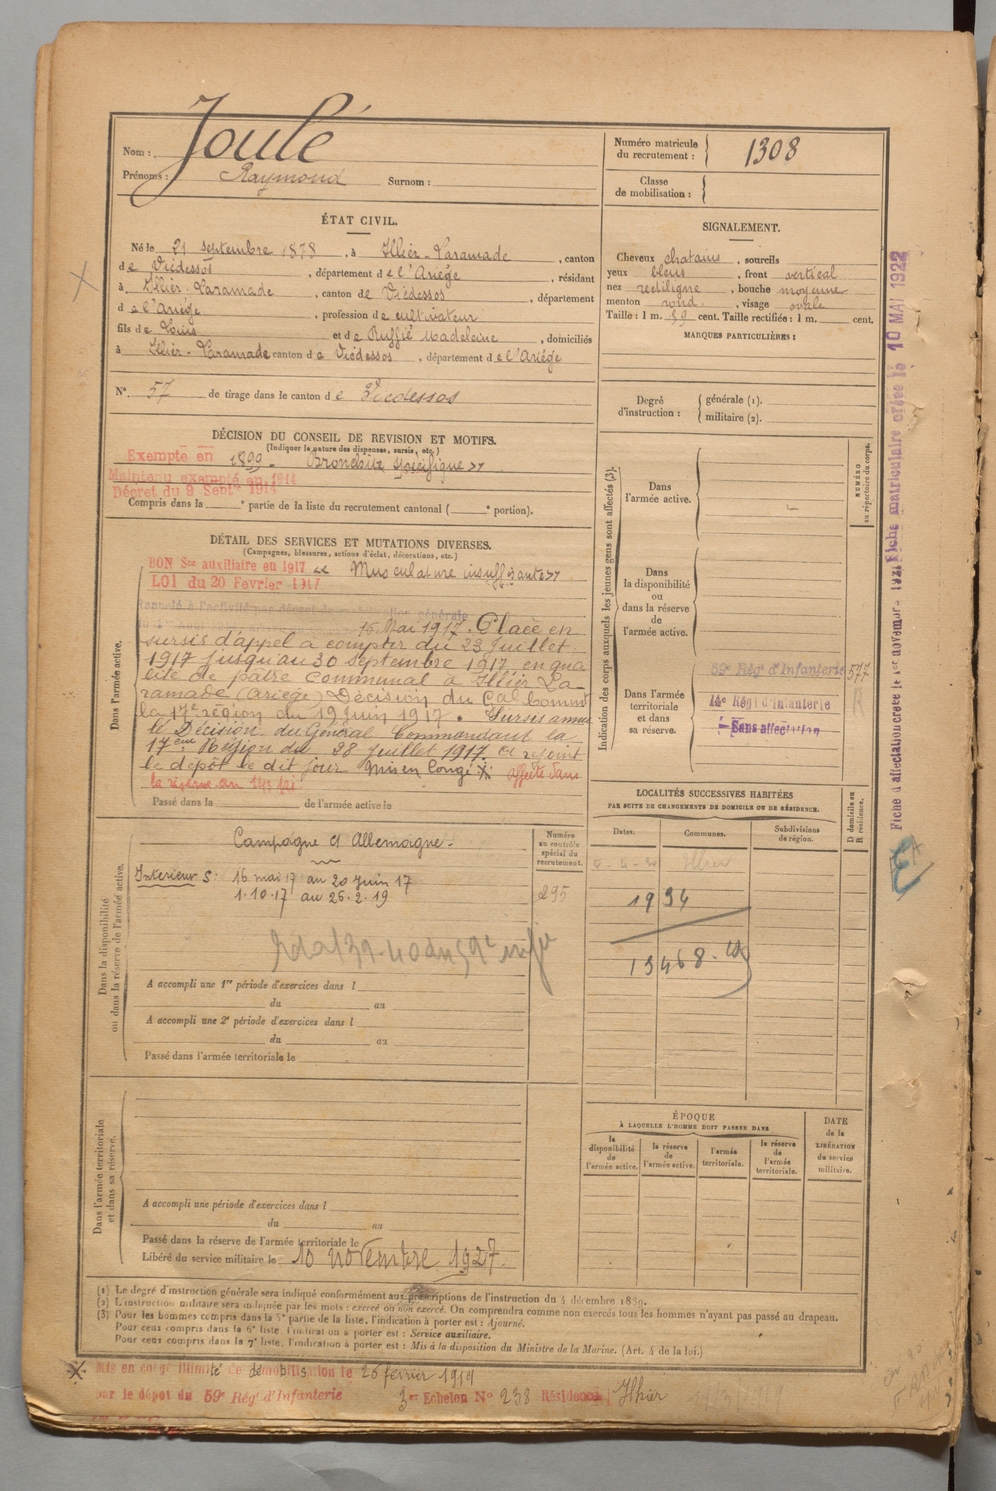 Nom : Joulé
Prénoms : Raymond Surnom :
Numéro matricule
du recrutement : 1308
Classe
de mobilisation :
ÉTAT CIVIL.
Né le 21 septembre 1878, à Illier-Laramade, canton
de Vicdessos, département de l'Ariège, résidant
à Illier-Laramade, canton de Vicdessos, département
de l'Ariège, profession de cultivateur
fils de Louis et de Ruffié Madeleine, domiciliés
à Illier-Laramade canton de Vicdessos, département de l'Ariège
N° 57 de tirage dans le canton de Vicdessos
SIGNALEMENT.
Cheveux chatains, sourcils
yeux bleus, front vertical
nez rectiligne, bouche moyenne
menton rond, visage ovale
Taille : 1 m. 59 cent. Taille rectifiée : 1 m. cent.
MARQUES PARTICULIÈRES :
Degré
d'instruction :
générale (1).
militaire (2).
DÉCISION DU CONSEIL DE REVISION ET MOTIFS.
(Indiquer la nature des dispenses, sursis, etc.)
Exempté en 1899. Bronchite spécifique »
Maintenu exempté en 1914
Décret du 9 Sept. 1914
Compris dans la e partie de la liste du recrutement cantonal ( e portion).
DÉTAIL DES SERVICES ET MUTATIONS DIVERSES.
(Campagnes, blessures, actions d'éclat, décorations, etc.)
BON Sce auxiliaire en 1917 « Musculature insuffisante »
LOI du 20 Février 1917
Rappelé à l'activité par décret de mobilisation générale
15 Mai 1917. Placé en
sursis d'appel à compter du 23 Juillet
1917 jusqu'au 30 septembre 1917 en qua
lité de patre communal à Illier La-
ramade (Ariège) Décision du Gal Commt
la 17e région du 19 Juin 1917. Sursis annu
lé Décision du Général Commandant la
17ème Région du 28 Juillet 1917 et rejoint
le dépôt le dit jour Mis en Congé X affecté dans
la réserve
Passé dans la de l'armée active le
Dans l'armée active.
Indication des corps auxquels les jeunes gens sont affectés (3).
NUMÉRO
au répertoire du corps.
Dans
l'armée active.
Dans
la disponibilité
ou
dans la réserve
de
l'armée active.
Dans l'armée
territoriale
et dans
sa réserve.
59e Rég' d'Infanterie 577
14e Rég' d'Infanterie R
Sans affectation
LOCALITÉS SUCCESSIVES HABITÉES
PAR SUITE DE CHANGEMENTS DE DOMICILE OU DE RÉSIDENCE.
Dates. Communes. Subdivisions
de région. D domicile ou
R résidence.
Illier
1934
13468
Campagne c/ Allemagne.
Interieur S : 16 mai 17 au 20 Juin 17
1.10.17 au 26.2.19
Numéro
au contrôle
spécial du
recrutement.
295
A accompli une 1re période d'exercices dans l
du au
A accompli une 2e période d'exercices dans l
du au
Passé dans l'armée territoriale le
Dans la disponibilité
ou dans la réserve de l'armée active.
Dans l'armée territoriale
et dans sa réserve.
A accompli une période d'exercices dans l
du au
Passé dans la réserve de l'armée territoriale le
Libéré du service militaire le 10 novembre 1927.
ÉPOQUE
À LAQUELLE L'HOMME DOIT PASSER DANS
la
disponibilité
de
l'armée active.
la réserve
de
l'armée active.
l'armée
territoriale.
la réserve
de
l'armée
territoriale.
DATE
de la
LIBÉRATION
du service
militaire.
(1) Le degré d'instruction générale sera indiqué conformément aux prescriptions de l'instruction du 4 décembre 1889.
(2) L'instruction militaire sera indiquée par les mots : exercé ou non exercé. On comprendra comme non exercés tous les hommes n'ayant pas passé au drapeau.
(3) Pour les hommes compris dans la 5e partie de la liste, l'indication à porter est : Ajourné.
Pour ceux compris dans la 6e liste, l'indication à porter est : Service auxiliaire.
Pour ceux compris dans la 7e liste, l'indication à porter est : Mis à la disposition du Ministre de la Marine. (Art. 4 de la loi.)
X Mis en congé illimité de démobilisation le 26 février 1919
par le dépôt du 59e Rég' d'Infanterie 3me Echelon N° 238 Résidence Illier
Fiche matriculaire créée le 10 MAI 1922
Fiche d'affectation créée le 1er novembre 1921